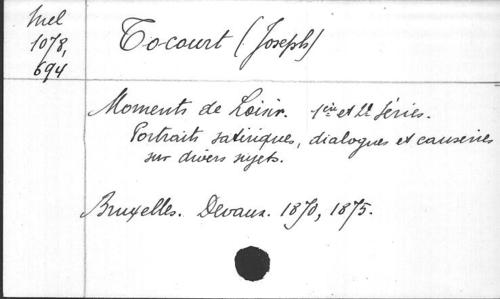 Mel
1078,
694
Tocourt (Joseph)
Moments de Loisir. 1ère et 2e Séries.
Portraits satiriques, dialogues et causeries
sur divers sujets.
Bruxelles. Devaux. 1870, 1875.